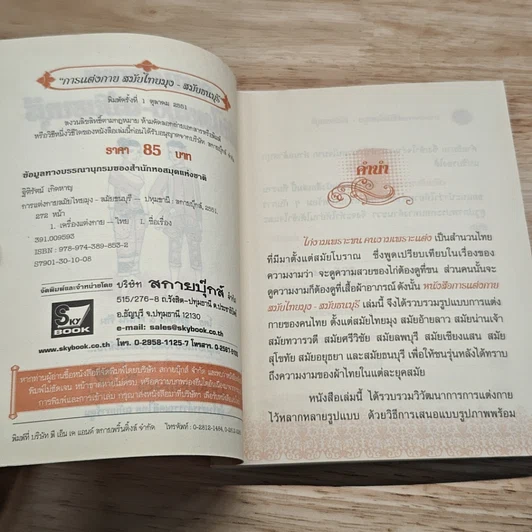 "การแต่งกาย สมัยไทยมุง - สมัยธนบุรี
พิมพ์ครั้งที่ 1 ตุลาคม 2551
สงวนลิขสิทธิ์ตามกฎหมาย ห้ามคัดลอกถ่ายเอกสารหรือพิมพ์
หรือวิธีหนึ่งวิธีใดของหนังสือเล่มนี้ก่อนได้รับอนุญาตจากบริษัท สกายบุ๊กส์
ราคา 85 บาท
ข้อมูลทางบรรณานุกรมของสำนักหอสมุดแห่งชาติ
ฐิติรัตน์ เกิดหาญ
การแต่งกายสมัยไทยมุง - สมัยธนบุรี -- ปทุมธานี : สกายบุ๊กส์, 2551.
หน้า
1. เครื่องแต่งกาย -- ไทย 1. ชื่อเรื่อง
391.009593
ISBN : 978-974-389-853-2
S7901-30-10-08
จัดพิมพ์และจำหน่ายโดย บริษัท สกายบุ๊กส์ จำกัด
SKY BOOK
515/276-8 ถ.รังสิต-ปทุมธานี ต.ประชาธิปัตย์
อ.ธัญบุรี จ.ปทุมธานี 12130
e-mail: sales@skybook.co.th
www.skybook.co.th
โทร. 0-2958-1125-7 โทรสาร.
หากท่านผู้อ่านซื้อหนังสือที่จัดพิมพ์โดยบริษัท สกายบุ๊กส์ จำกัด
พิมพ์ที่ บริษัท พี เอ็น เค แอนด์ สกายพริ้นติ้งส์ จำกัด โทรศัพท์.
คำนำ
ไก่งามเพราะขน คนงามเพราะแต่ง เป็นสำนวนไทย
ที่มีมาตั้งแต่สมัยโบราณ ซึ่งพูดเปรียบเทียบในเรื่องของ
ความงามว่า จะดูความสวยของไก่ต้องดูที่ขน ส่วนคนนั้นจะ
ดูความงามก็ต้องดูที่เสื้อผ้าอาภรณ์ ดังนั้น หนังสือการแต่งกาย
สมัยไทยมุง - สมัยธนบุรี เล่มนี้ จึงได้รวบรวมรูปแบบการแต่ง
กายของคนไทย ตั้งแต่สมัยไทยมุง สมัยอ้ายลาว สมัยน่านเจ้า
สมัยทวารวดี สมัยศรีวิชัย สมัยลพบุรี สมัยเชียงแสน สมัย
สุโขทัย สมัยอยุธยา และสมัยธนบุรี เพื่อให้ชนรุ่นหลังได้ทราบ
ถึงความงามของผ้าไทยในแต่ละยุคสมัย
หนังสือเล่มนี้ ได้รวบรวมวิวัฒนาการการแต่งกาย
ไว้หลากหลายรูปแบบ ด้วยวิธีการเสนอแบบรูปภาพพร้อม